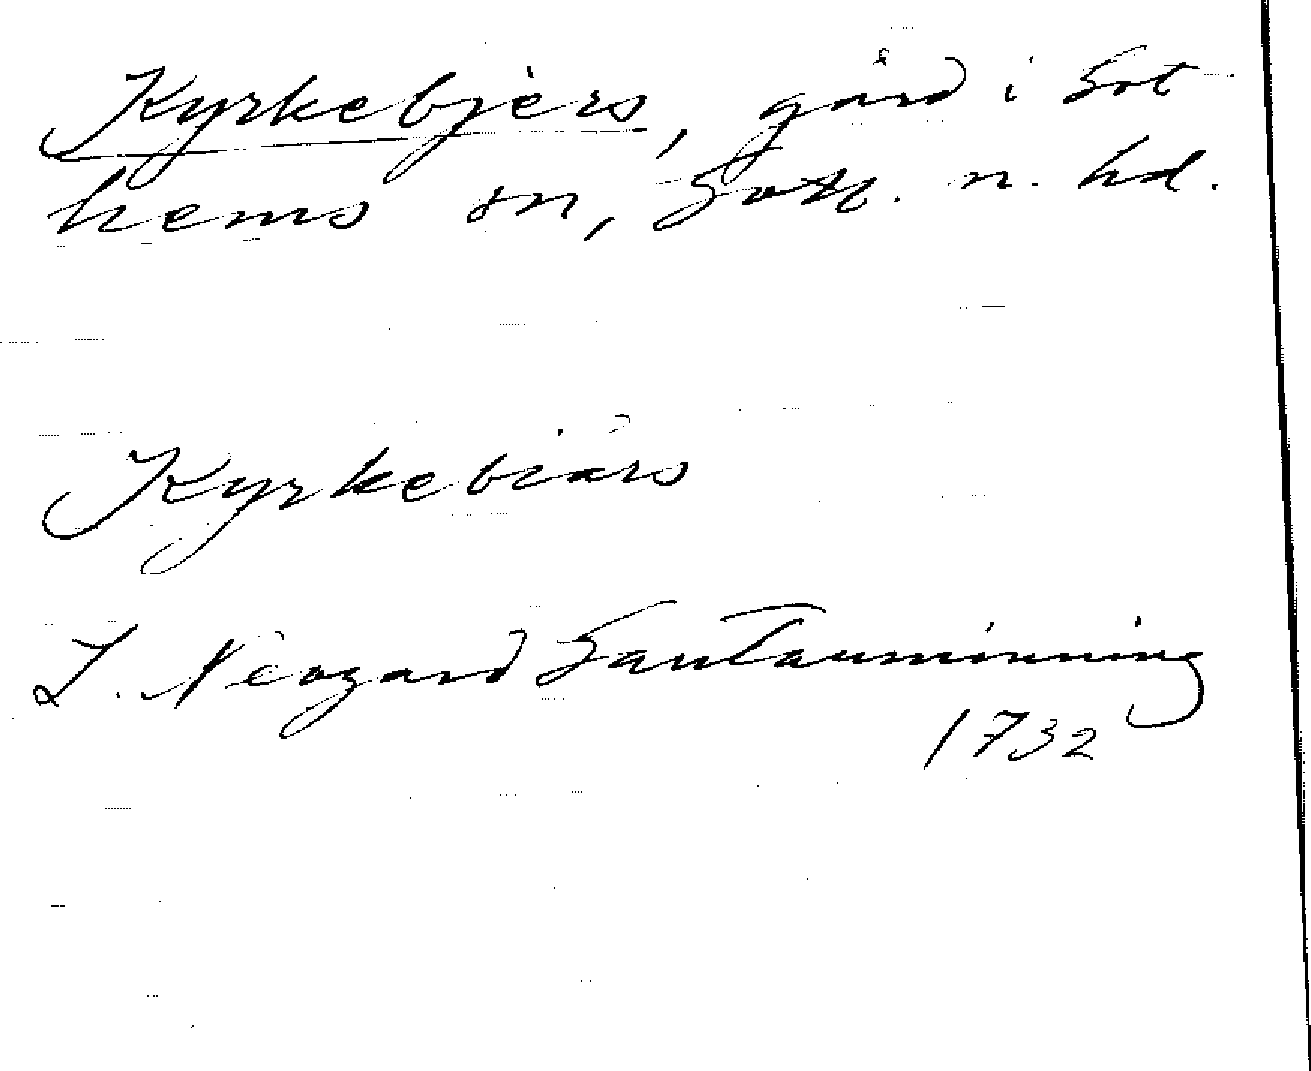 Kyrkebjers, gård i Got
hems sn, Gotl. n. hd.
Kyrkebiärs
L. Neogard Gautauminning
1732